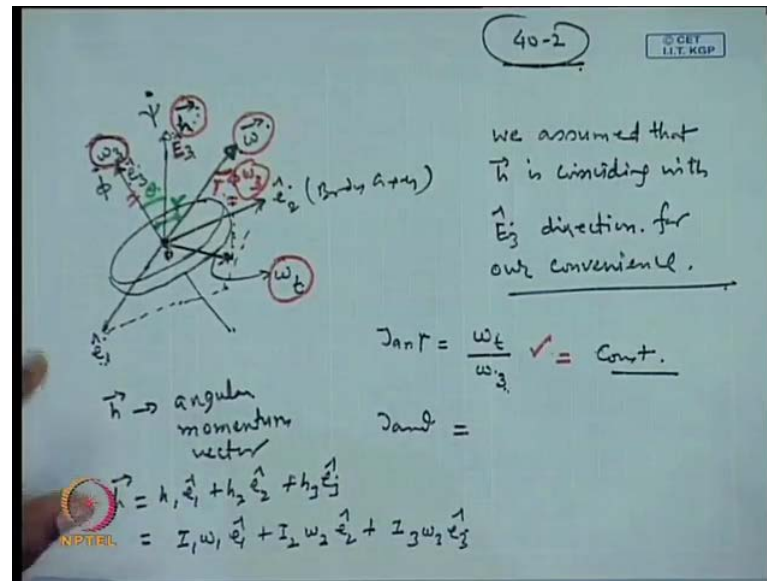 40-2
© CET
I.I.T. KGP
ψ̇
h⃗
Ê₃
ω⃗
ω₃
ê₃
φ̇
θ
γ
ω₃
ê₂ (Body axis)
ω_t
ê₁
we assumed that
h⃗ is coinciding with
Ê₃ direction. for
our convenience.
Tan γ = ω_t / ω₃ ✓ = Const.
h⃗ → angular
momentum
vector
Tan θ =
h⃗ = h₁ ê₁ + h₂ ê₂ + h₃ ê₃
= I₁ω₁ ê₁ + I₂ ω₂ ê₂ + I₃ω₃ ê₃
NPTEL